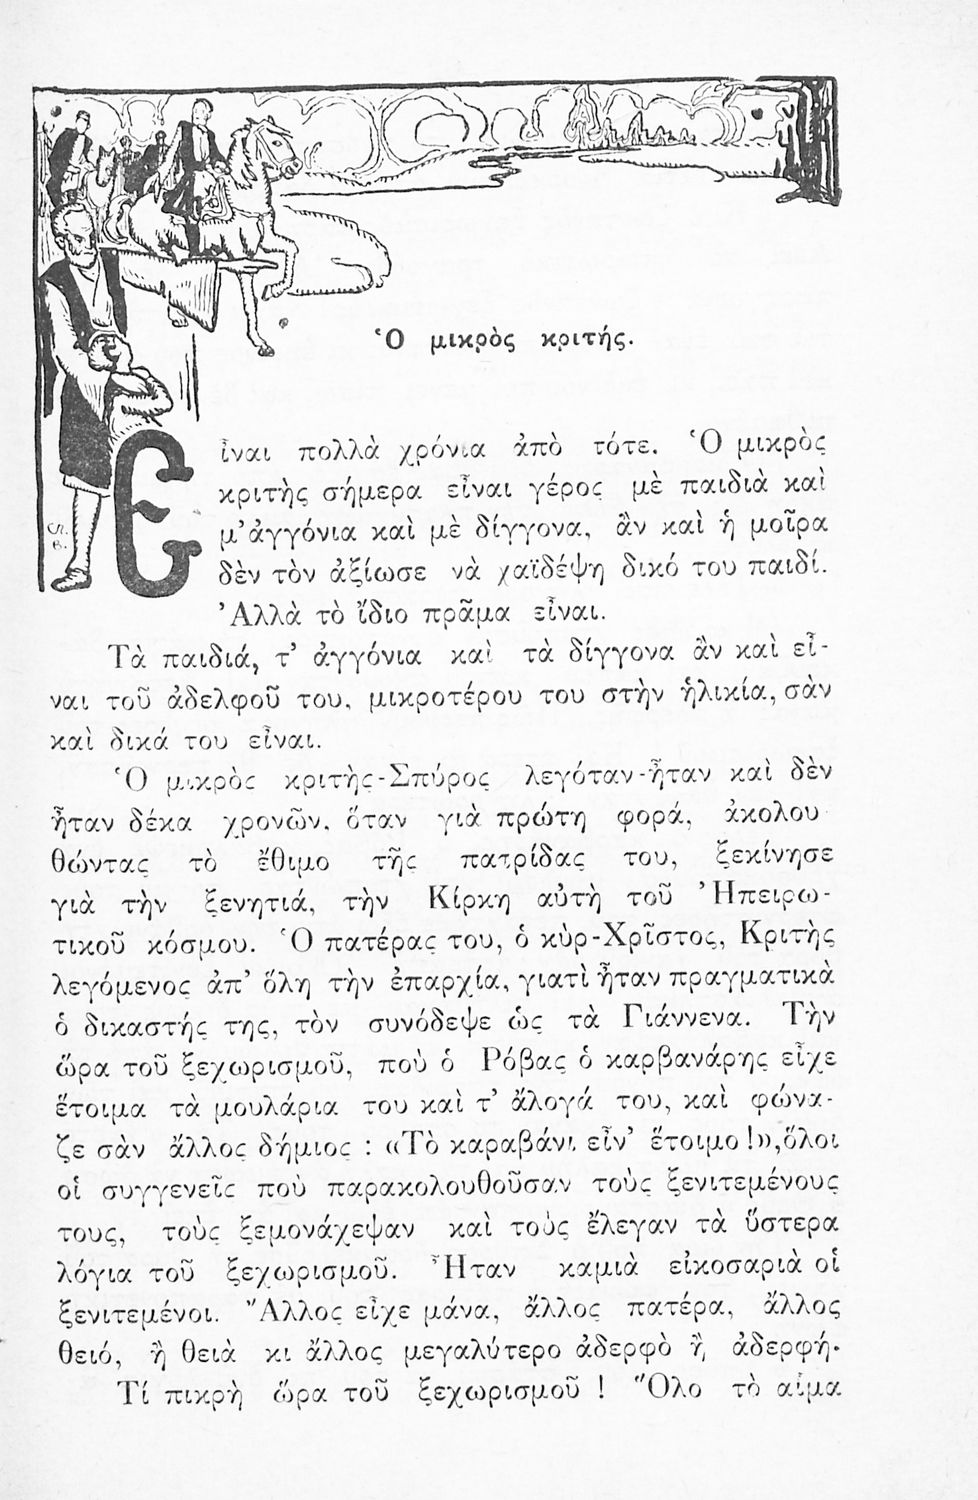 Ὁ μικρὸς κριτής.
Εἶναι πολλὰ χρόνια ἀπὸ τότε. Ὁ μικρὸς
κριτὴς σήμερα εἶναι γέρος μὲ παιδιὰ καὶ
μ' ἀγγόνια καὶ μὲ δίγγονα, ἂν καὶ ἡ μοῖρα
δὲν τὸν ἀξίωσε νὰ χαϊδέψῃ δικό του παιδί.
Ἀλλὰ τὸ ἴδιο πρᾶμα εἶναι.
Τὰ παιδιά, τ' ἀγγόνια καὶ τὰ δίγγονα ἂν καὶ εἶ-
ναι τοῦ ἀδελφοῦ του, μικροτέρου του στὴν ἡλικία, σὰν
καὶ δικά του εἶναι.
Ὁ μικρὸς κριτὴς-Σπύρος λεγόταν-ἦταν καὶ δὲν
ἦταν δέκα χρονῶν, ὅταν γιὰ πρώτη φορά, ἀκολου
θώντας τὸ ἔθιμο τῆς πατρίδας του, ξεκίνησε
γιὰ τὴν ξενητιά, τὴν Κίρκη αὐτὴ τοῦ Ἠπειρω-
τικοῦ κόσμου. Ὁ πατέρας του, ὁ κὺρ-Χρῖστος, Κριτὴς
λεγόμενος ἀπ' ὅλη τὴν ἐπαρχία, γιατὶ ἦταν πραγματικὰ
ὁ δικαστής της, τὸν συνόδεψε ὡς τὰ Γιάννενα. Τὴν
ὥρα τοῦ ξεχωρισμοῦ, ποὺ ὁ Ρόβας ὁ καρβανάρης εἶχε
ἕτοιμα τὰ μουλάρια του καὶ τ' ἄλογά του, καὶ φώνα-
ζε σὰν ἄλλος δήμιος : «Τὸ καραβάνι εἶν' ἕτοιμο!», ὅλοι
οἱ συγγενεῖς ποὺ παρακολουθοῦσαν τοὺς ξενιτεμένους
τους, τοὺς ξεμονάχεψαν καὶ τοὺς ἔλεγαν τὰ ὕστερα
λόγια τοῦ ξεχωρισμοῦ. Ἦταν καμιὰ εἰκοσαριὰ οἱ
ξενιτεμένοι. Ἄλλος εἶχε μάνα, ἄλλος πατέρα, ἄλλος
θειό, ἢ θειὰ κι ἄλλος μεγαλύτερο ἀδερφὸ ἢ ἀδερφή.
Τί πικρὴ ὥρα τοῦ ξεχωρισμοῦ ! Ὅλο τὸ αἷμα